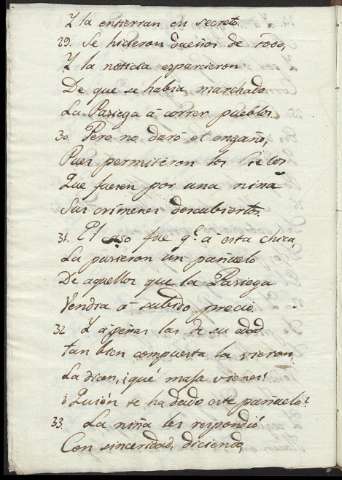 Y la entierran en secreto.
29. Se hicieron dueños de todo,
Y la noticia esparcieron
De que se habia marchado
La Pasiega á correr pueblos.
30. Pero no duró el engaño,
Pues permitieron los Cielos
Que fuesen por una niña
Sus crímenes descubiertos.
31. El caso fue q.e á esta chica
La pusieron un pañuelo
De aquellos que la Pasiega
Vendia á subido precio.
32. Y apenas las de su edad
Tan bien compuesta la vieron,
La dicen, ¡qué maja vienes!
¿Quién te ha dado este pañuelo?
33. La niña les respondió
Con sinceridad, diciendo,